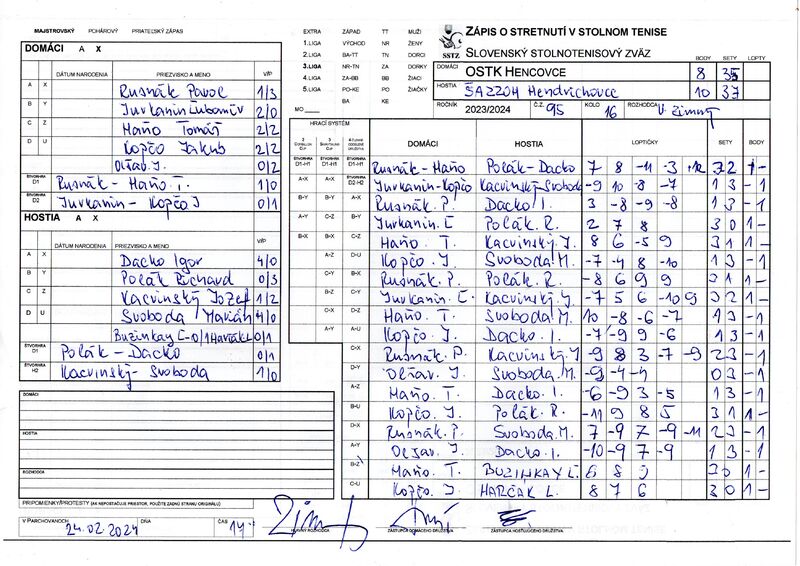 MAJSTROVSKÝ POHÁROVÝ PRIATEĽSKÝ ZÁPAS
DOMÁCI A X
DÁTUM NARODENIA PRIEZVISKO A MENO V/P
A X Rusnák Pavol 1/3
B Y Jurkanin Ľubomír 2/0
C Z Maňo Tomáš 2/2
D U Kopčo Jakub 2/2
Oľšav J. 0/2
ŠTVORHRA D1 Rusnák - Maňo T. 1/0
ŠTVORHRA D2 Jurkanin - Kopčo J 0/1
HOSTIA A X
DÁTUM NARODENIA PRIEZVISKO A MENO V/P
A X Dacko Igor 4/0
B Y Polák Richard 0/3
C Z Kacvinský Jozef 1/2
D U Svoboda Marián 4/0
Buzinkay L-0/1 Harčák L 0/1
ŠTVORHRA D1 Polák - Dacko 0/1
ŠTVORHRA H2 Kacvinský - Svoboda 1/0
DOMÁCI
HOSTIA
ROZHODCA
PRIPOMIENKY/PROTESTY (AK NEPOSTAČUJE PRIESTOR, POUŽITE ZADNÚ STRANU ORIGINÁLU)
V PARCHOVANOCH 24.02.2024 DŇA ČAS 14
HLAVNÝ ROZHODCA ZÁSTUPCA DOMÁCEHO DRUŽSTVA ZÁSTUPCA HOSŤUJÚCEHO DRUŽSTVA
EXTRA ZÁPAD TT MUŽI
1.LIGA VÝCHOD NR ŽENY
2.LIGA BA-TT TN DORCI
3.LIGA NR-TN ZA DORKY
4.LIGA ZA-BB BB ŽIACI
5.LIGA PO-KE PO ŽIAČKY
MO BA KE
SSTZ
ZÁPIS O STRETNUTÍ V STOLNOM TENISE
SLOVENSKÝ STOLNOTENISOVÝ ZVÄZ
BODY SETY LOPTY
DOMÁCI OSTK HENCOVCE 8 35
HOSTIA ŠAZZOH Hendrichovce 10 37
ROČNÍK 2023/2024 Č.Z. 95 KOLO 16 ROZHODCA V. Zimný
HRACÍ SYSTÉM
DOMÁCI HOSTIA LOPTIČKY SETY BODY
ŠTVORHRA D1-H1 Rusnák - Maňo Polák - Dacko 7 8 -11 -3 +12 3 2 1 -
A-X ŠTVORHRA D2-H2 Jurkanin-Kopčo Kacvinský-Svoboda -9 10 -8 -7 1 3 - 1
B-Y A-X Rusnák P. Dacko I. 3 -8 -9 -8 1 3 - 1
A-Y C-Z B-Y Jurkanin Ľ Polák. R. 2 7 8 3 0 1 -
B-X B-X C-Z Maňo. T. Kacvinský. J. 8 6 -5 9 3 1 1 -
A-Z D-U Kopčo. J. Svoboda. M. -7 -4 8 -10 1 3 - 1
C-Y B-X Rusnák. P. Polák. R. -8 6 9 9 3 1 1 -
B-Z C-Y Jurkanin. Ľ. Kacvinský. J. -7 5 6 -10 9 3 2 1 -
C-X D-Z Maňo. T. Svoboda. M. 10 -8 -6 -7 1 3 - 1
A-U Kopčo. J. Dacko. I. -7 -9 9 -6 1 3 - 1
C-X Rusnák. P. Kacvinský. J -9 8 3 -7 -9 2 3 - 1
D-Y Oľšav. J. Svoboda. M. -9 -4 -4 0 3 - 1
A-Z Maňo. T. Dacko. I. -6 -9 3 -5 1 3 - 1
B-U Kopčo. J. Polák. R. -11 9 8 5 3 1 1 -
D-X Rusnák. P. Svoboda. M. 7 -9 7 -9 -11 2 3 - 1
A-Y Oľšav. J. Dacko. I. -10 -9 7 -9 1 3 - 1
B-Z Maňo. T. BUZINKAY L. 6 8 9 3 0 1 -
C-U Kopčo. J. HARČÁK L. 8 7 6 3 0 1 -